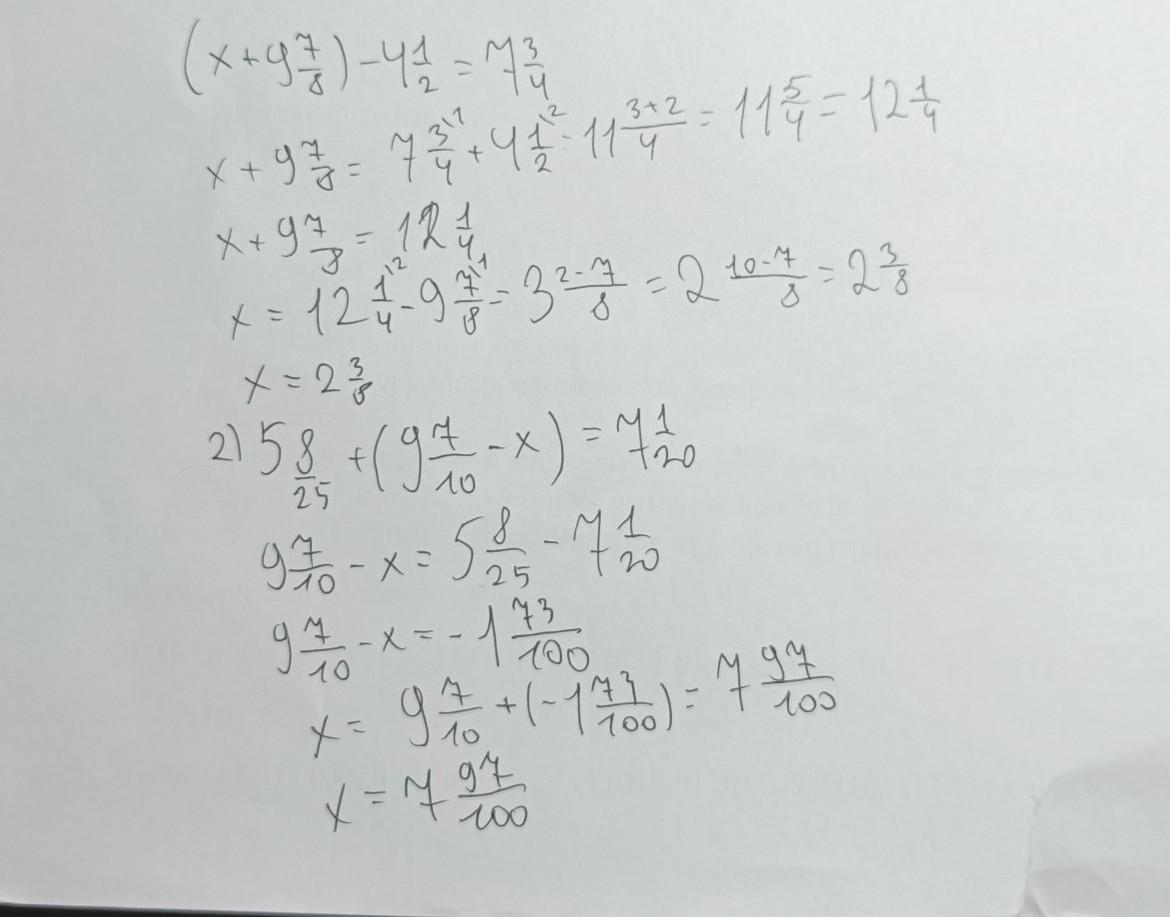 (x+9 7/8)-4 1/2=7 3/4
x+9 7/8=7 3\1/4+4 1\2/2=11 3+2/4=11 5/4=12 1/4
x+9 7/8=12 1/4
x=12 1\2/4-9 7\1/8=3 2-7/8=2 10-7/8=2 3/8
x=2 3/8
2) 5 8/25+(9 7/10-x)=7 1/20
9 7/10-x=5 8/25-7 1/20
9 7/10-x=-1 73/100
x=9 7/10+(-1 73/100)=7 97/100
x=7 97/100